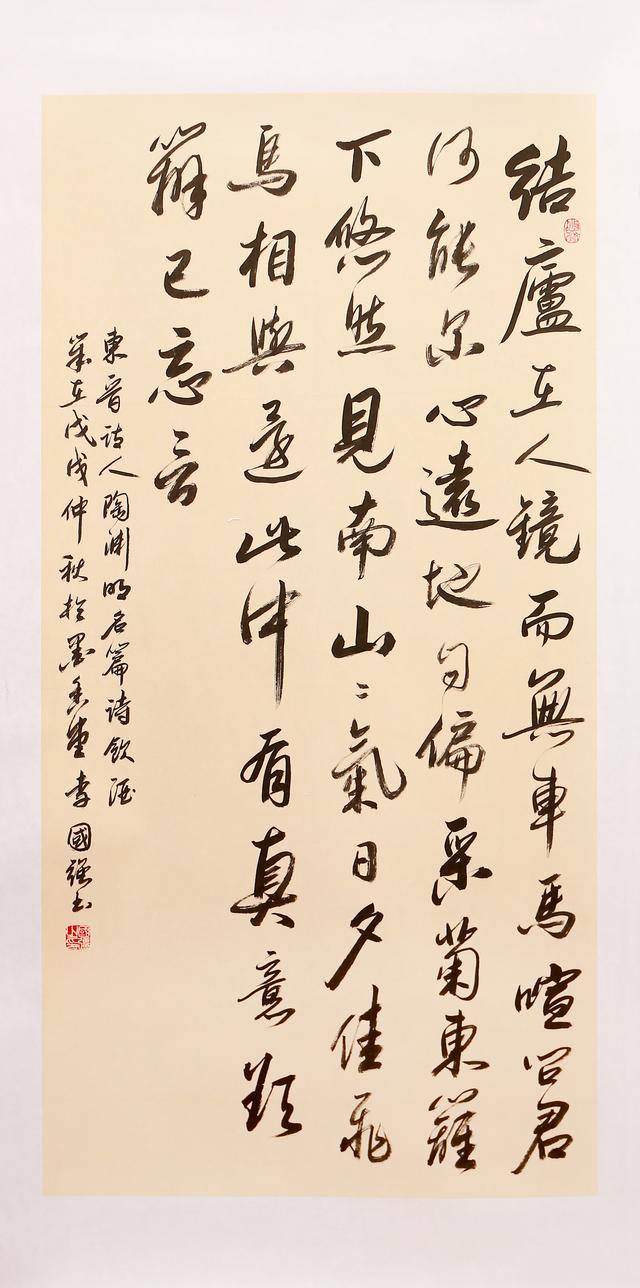 結廬在人鏡而無車馬喧問君
何能尔心遠地自偏采菊東籬
下悠然見南山〻氣日夕佳飛
鳥相與還此中有真意欲
辨已忘言
東晉詩人陶渊明名篇詩飲酒
歲在戊戌仲秋於墨香堂李國強书